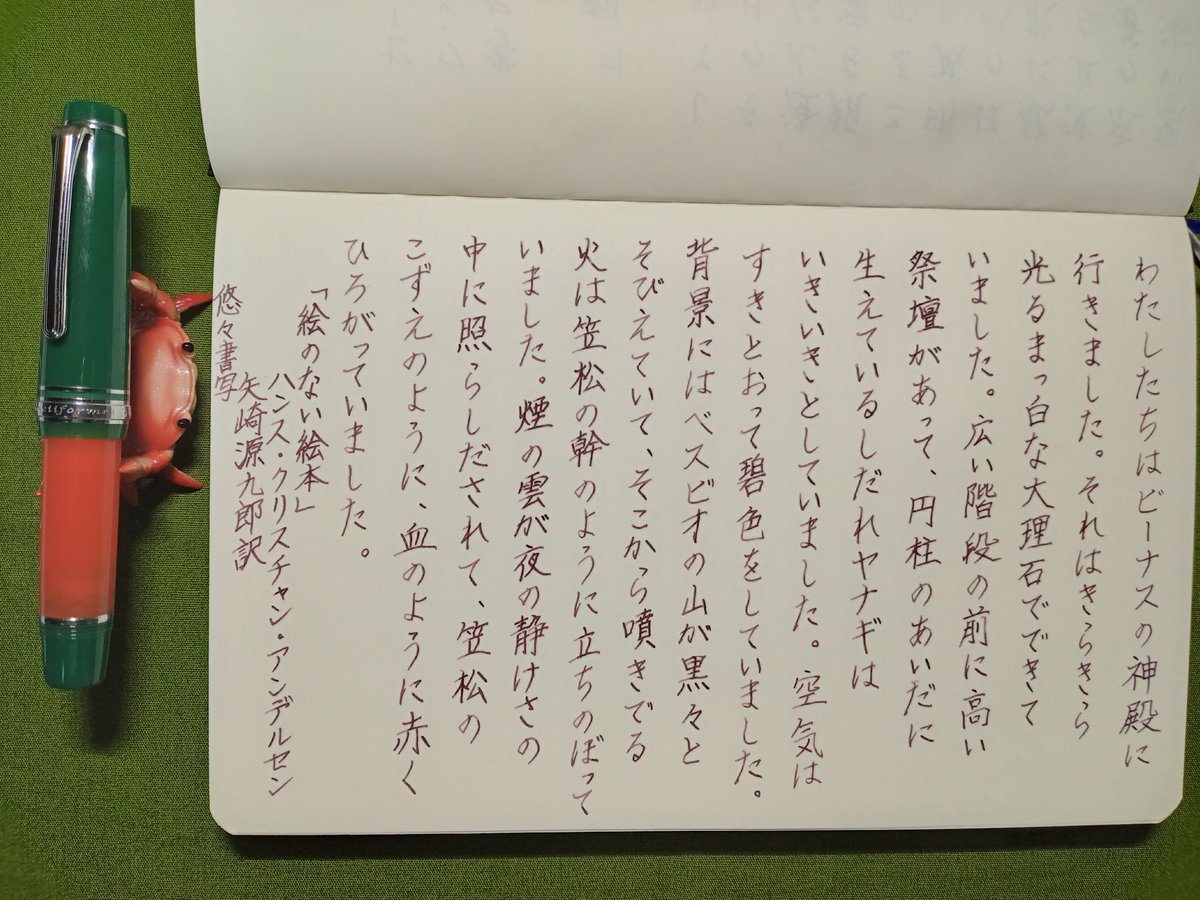 わたしたちはビーナスの神殿に
行きました。それはきらきら
光るまっ白な大理石でできて
いました。広い階段の前に高い
祭壇があって、円柱のあいだに
生えているしだれヤナギは
いきいきとしていました。空気は
すきとおって碧色をしていました。
背景にはベスビオの山が黒々と
そびえていて、そこから噴きでる
火は笠松の幹のように立ちのぼって
いました。煙の雲が夜の静けさの
中に照らしだされて、笠松の
こずえのように、血のように赤く
ひろがっていました。
「絵のない絵本」
ハンス・クリスチャン・アンデルセン
矢崎源九郎訳
悠々書写